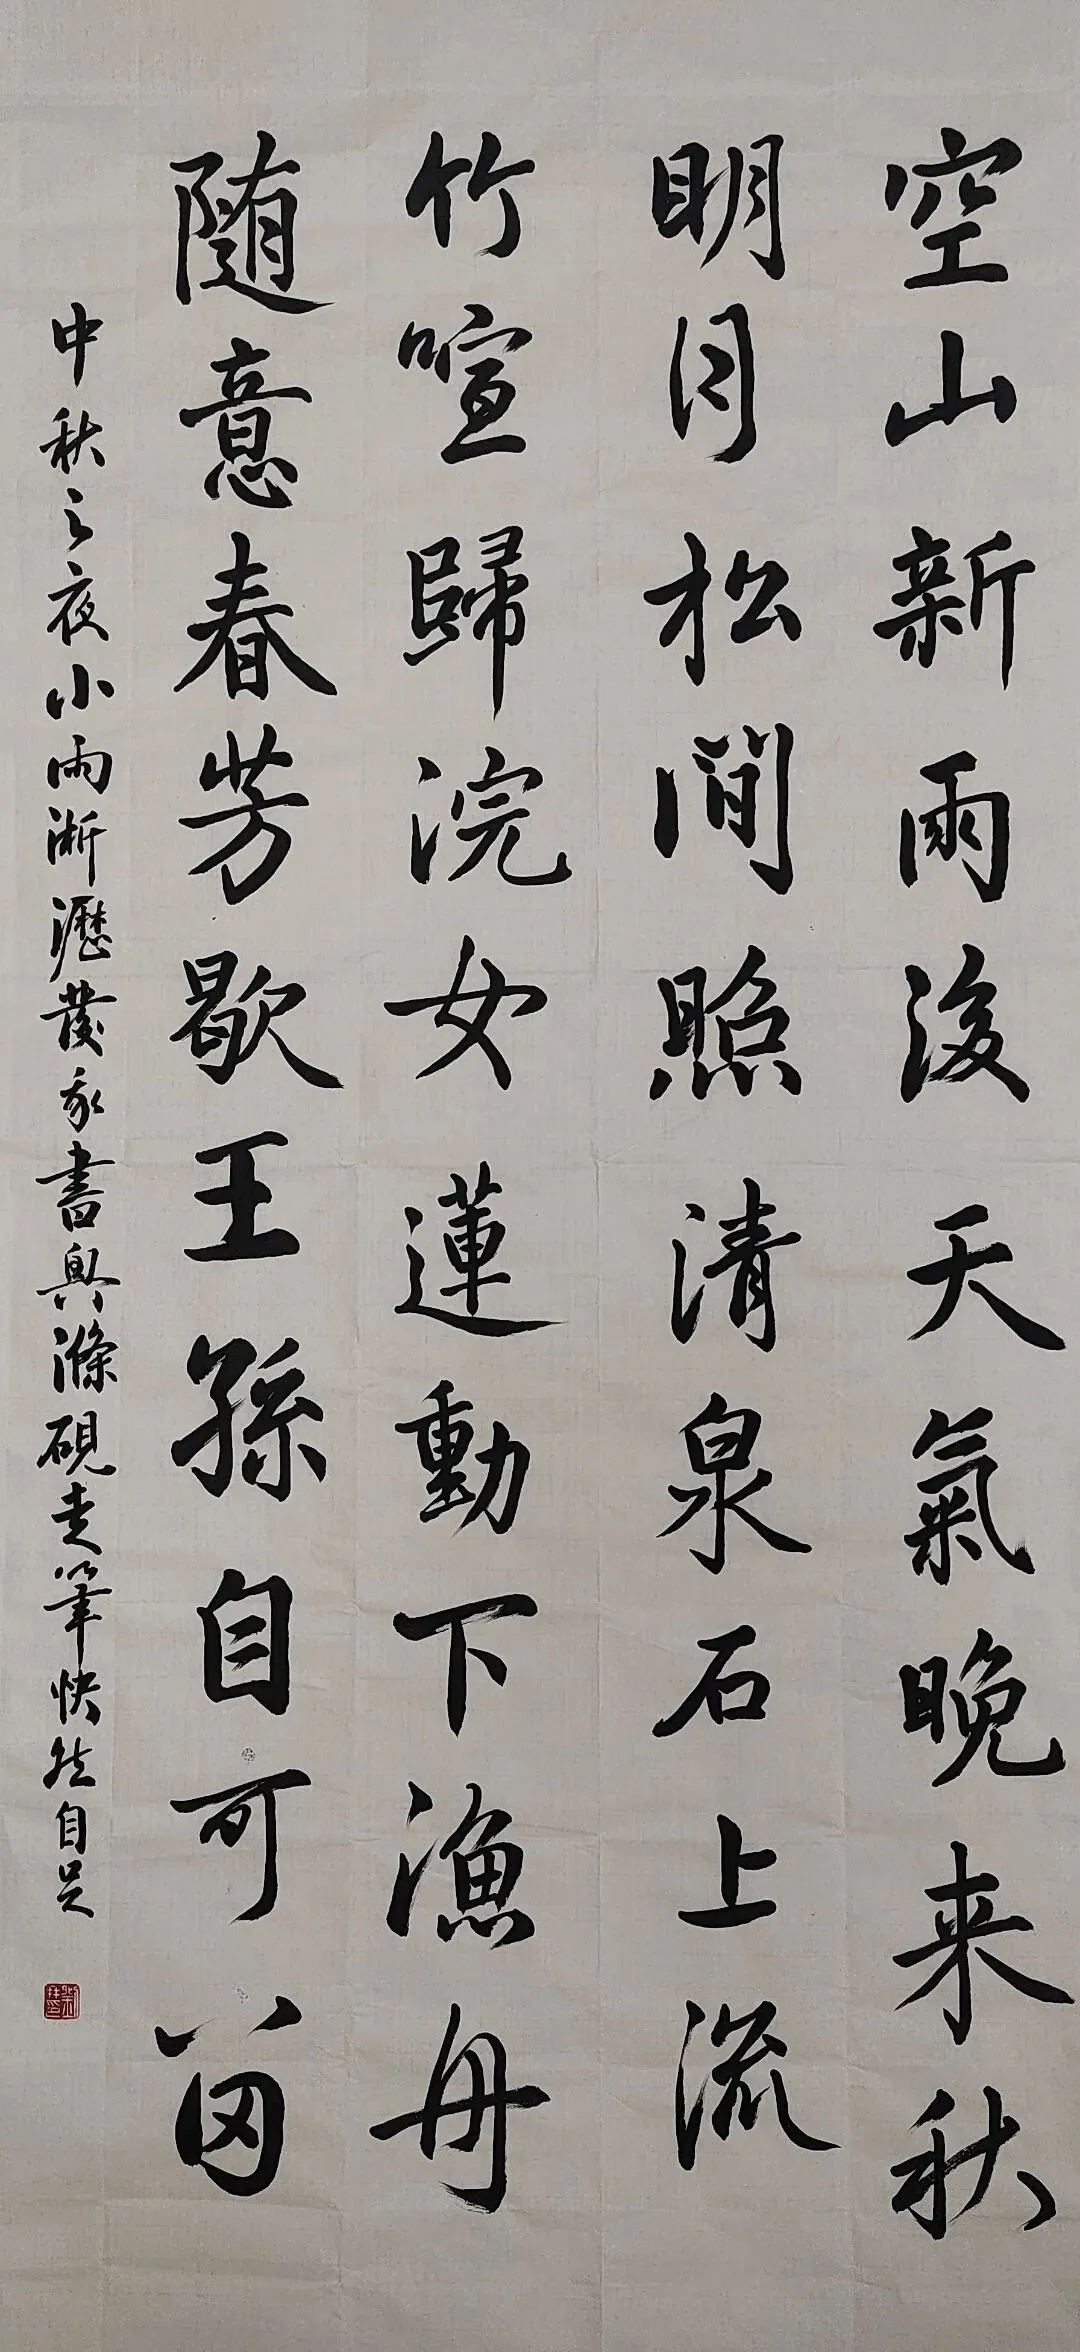 空山新雨後天氣晚来秋
明月松間照清泉石上流
竹喧歸浣女蓮動下漁舟
随意春芳歇王孫自可留
中秋之夜小雨淅瀝發我書興滌硯走筆快然自足